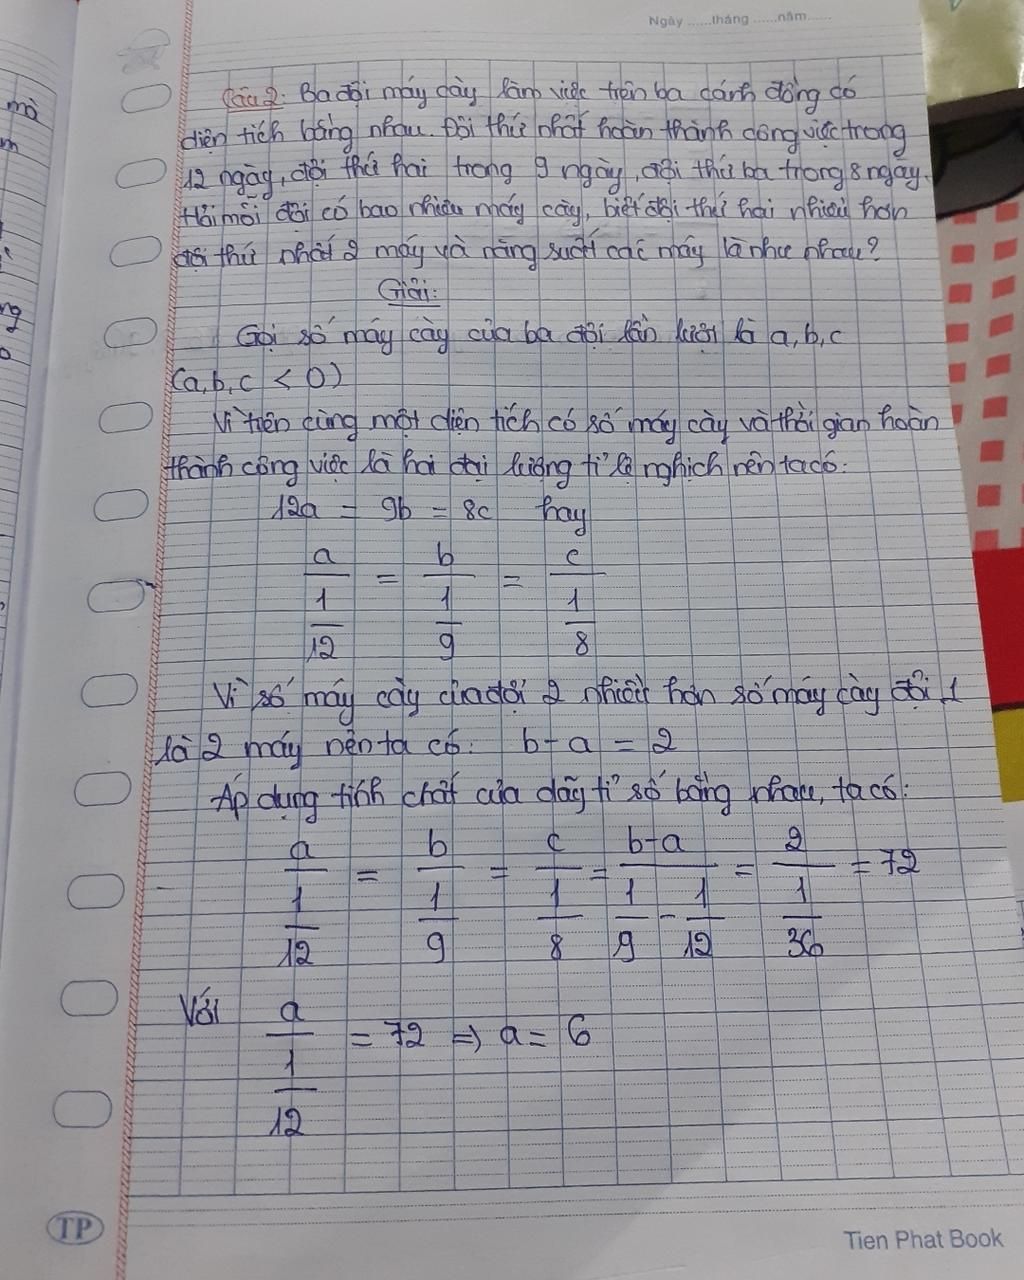 Ngày ......tháng ......năm......
Câu 2: Ba đội máy cày làm việc trên ba cánh đồng có
diện tích bằng nhau. Đội thứ nhất hoàn thành công việc trong
12 ngày, đội thứ hai trong 9 ngày, đội thứ ba trong 8 ngày.
Hỏi mỗi đội có bao nhiêu máy cày, biết đội thứ hai nhiều hơn
đội thứ nhất 2 máy và năng suất các máy là như nhau?
Giải:
Gọi số máy cày của ba đội lần lượt là a, b, c
(a, b, c < 0)
Vì trên cùng một diện tích có số máy cày và thời gian hoàn
thành công việc là hai đại lượng tỉ lệ nghịch nên ta có:
12a = 9b = 8c hay
a/(1/12) = b/(1/9) = c/(1/8)
Vì số máy cày của đội 2 nhiều hơn số máy cày đội 1
là 2 máy nên ta có: b - a = 2
Áp dụng tính chất của dãy tỉ số bằng nhau, ta có:
a/(1/12) = b/(1/9) = c/(1/8) = (b-a)/(1/9 - 1/12) = 2/(1/36) = 72
Với a/(1/12) = 72 => a = 6
TP
Tien Phat Book